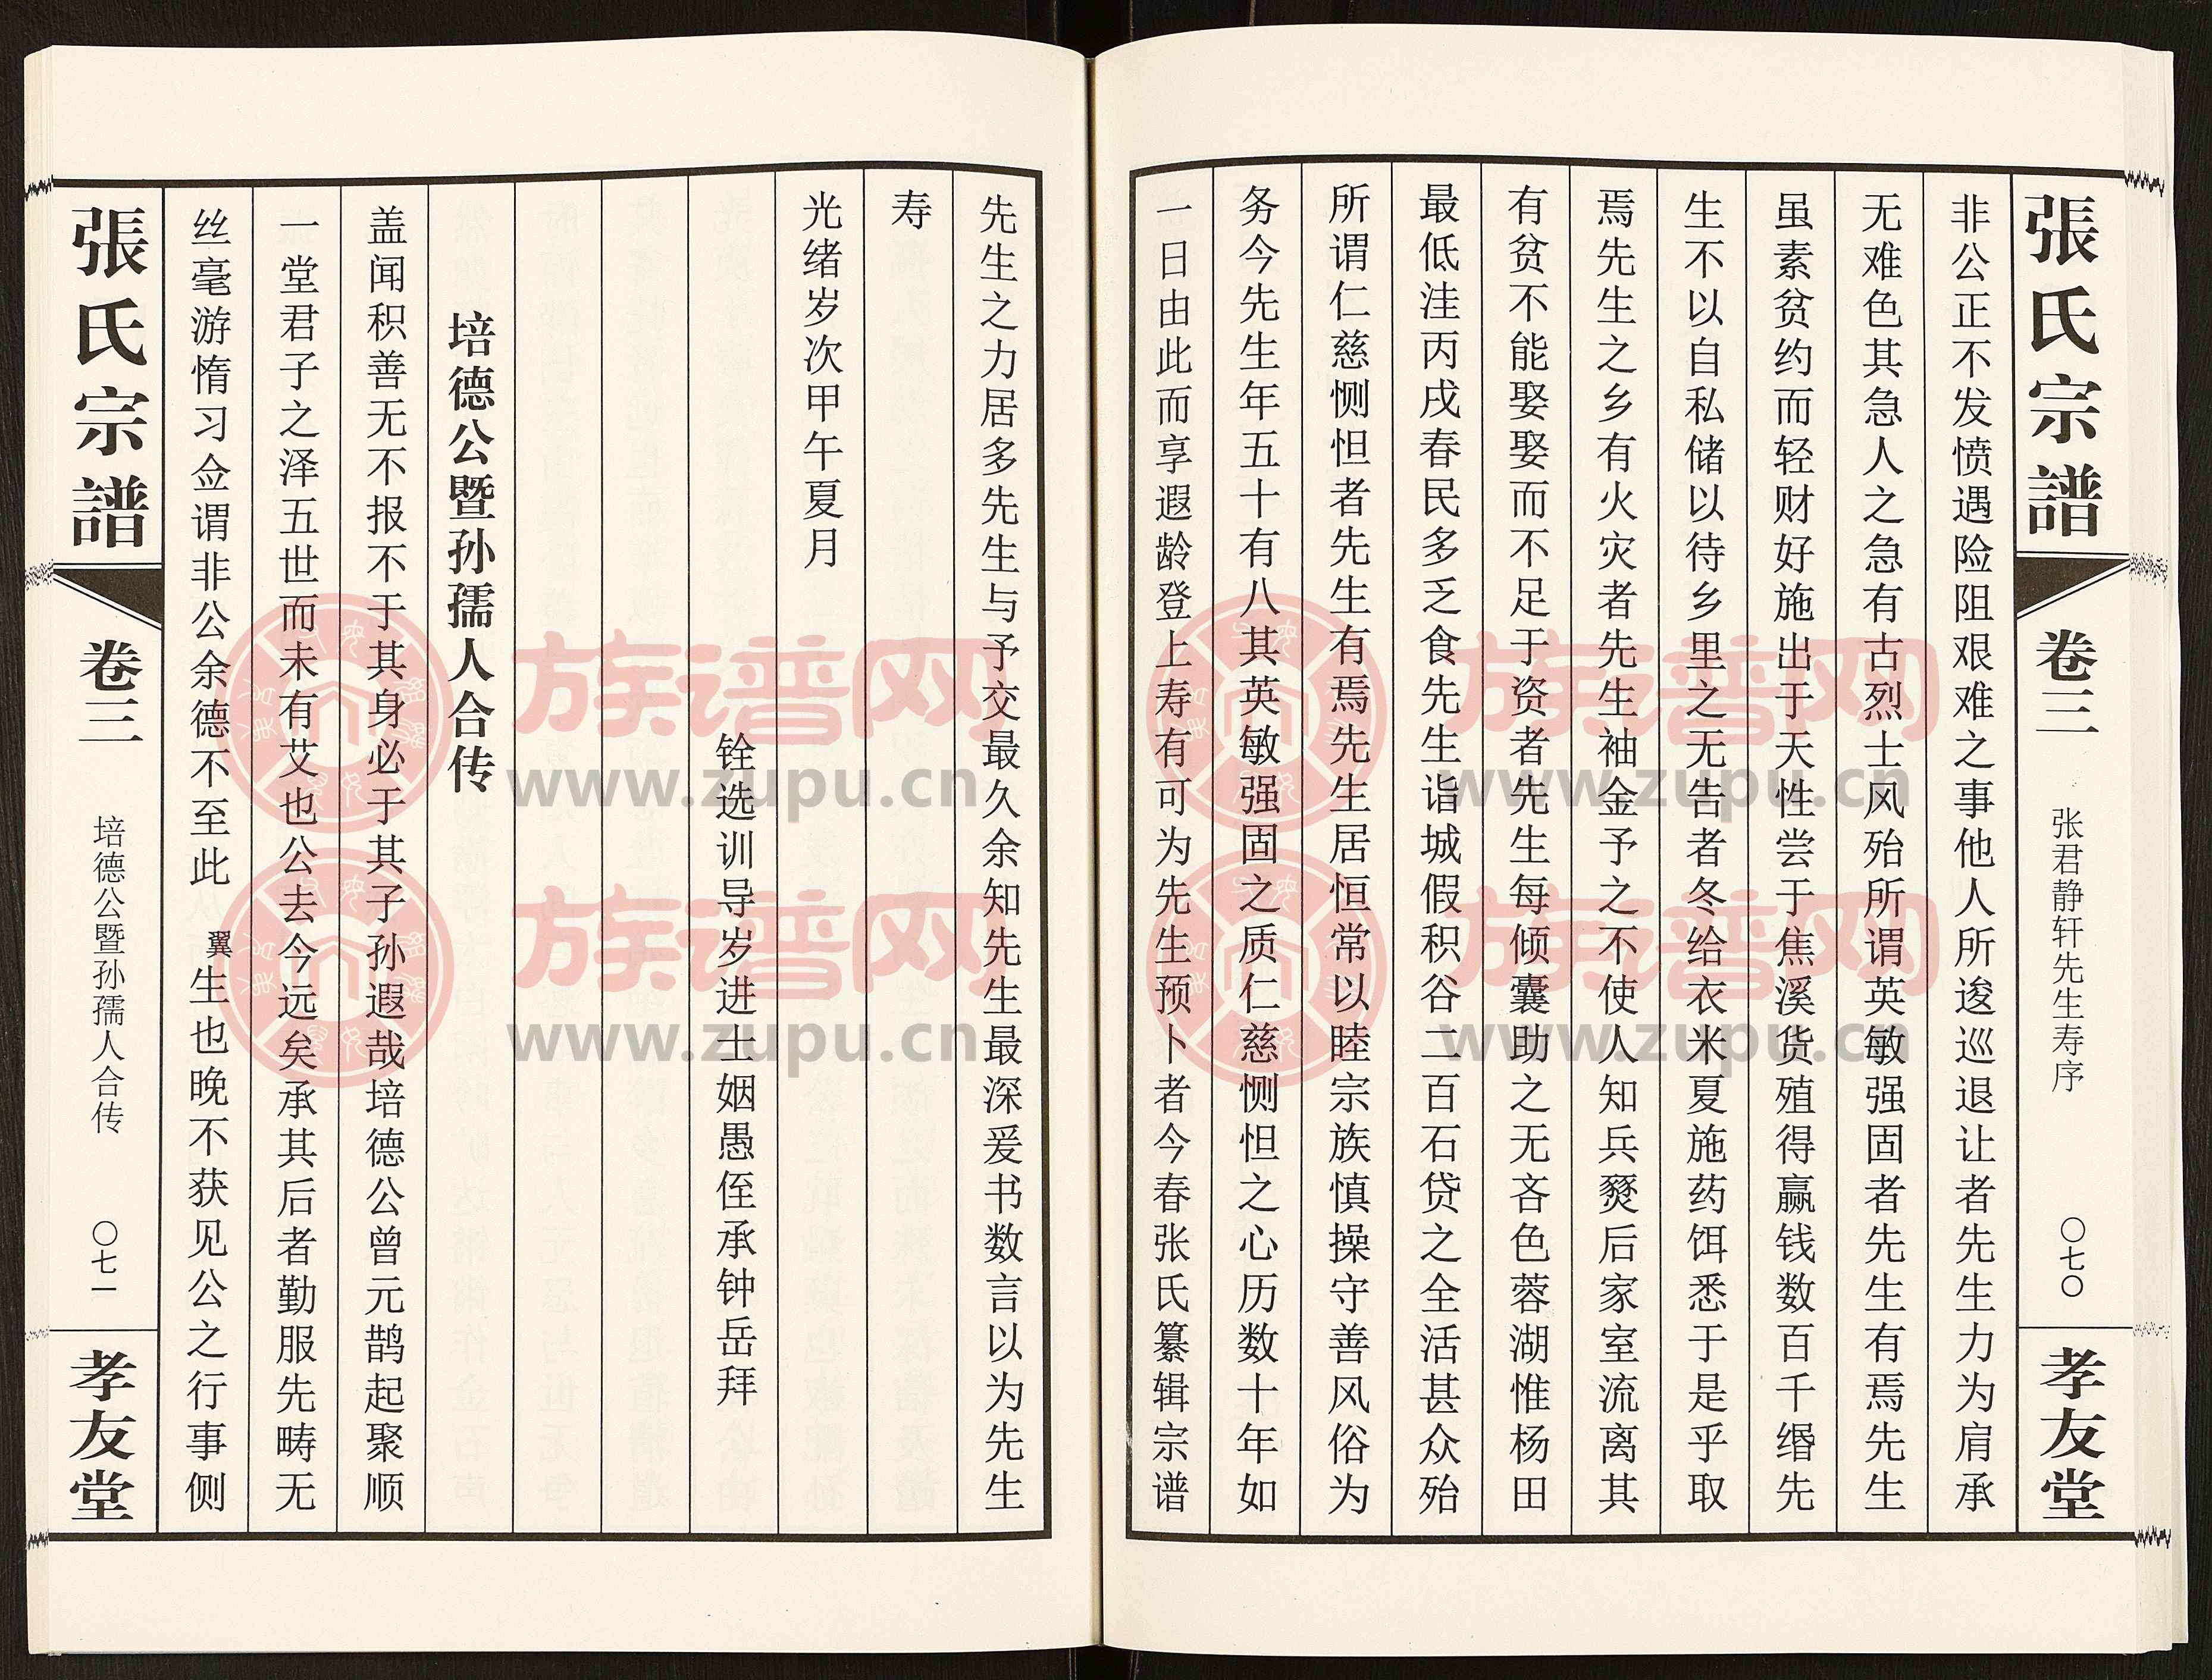 張氏宗譜
卷三
张君静轩先生寿序
〇七〇
孝友堂
非公正不发愤遇险阻艰难之事他人所逡巡退让者先生力为肩承
无难色其急人之急有古烈士风殆所谓英敏强固者先生有焉先生
虽素贫约而轻财好施出于天性尝于焦溪货殖得赢钱数百千缗先
生不以自私储以待乡里之无告者冬给衣米夏施药饵悉于是乎取
焉先生之乡有火灾者先生袖金予之不使人知兵燹后家室流离其
有贫不能娶娶而不足于资者先生每倾囊助之无吝色蓉湖惟杨田
最低洼丙戌春民多乏食先生诣城假积谷二百石贷之全活甚众殆
所谓仁慈恻怛者先生有焉先生居恒常以睦宗族慎操守善风俗为
务今先生年五十有八其英敏强固之质仁慈恻怛之心历数十年如
一日由此而享遐龄登上寿有可为先生预卜者今春张氏纂辑宗谱
先生之力居多先生与予交最久余知先生最深爰书数言以为先生
寿
光绪岁次甲午夏月
铨选训导岁进士姻愚侄承钟岳拜
培德公暨孙孺人合传
盖闻积善无不报不于其身必于其子孙遐哉培德公曾元鹊起聚顺
一堂君子之泽五世而未有艾也公去今远矣承其后者勤服先畴无
丝毫游惰习佥谓非公余德不至此 翼生也晚不获见公之行事侧
張氏宗譜
卷三
培德公暨孙孺人合传
〇七一
孝友堂
族谱网
www.zupu.cn
族谱网
www.zupu.cn
族谱网
www.zupu.cn
族谱网
www.zupu.cn